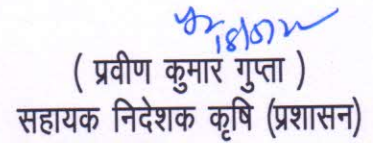 ( प्रवीण कुमार गुप्ता )
सहायक निदेशक कृषि (प्रशासन)